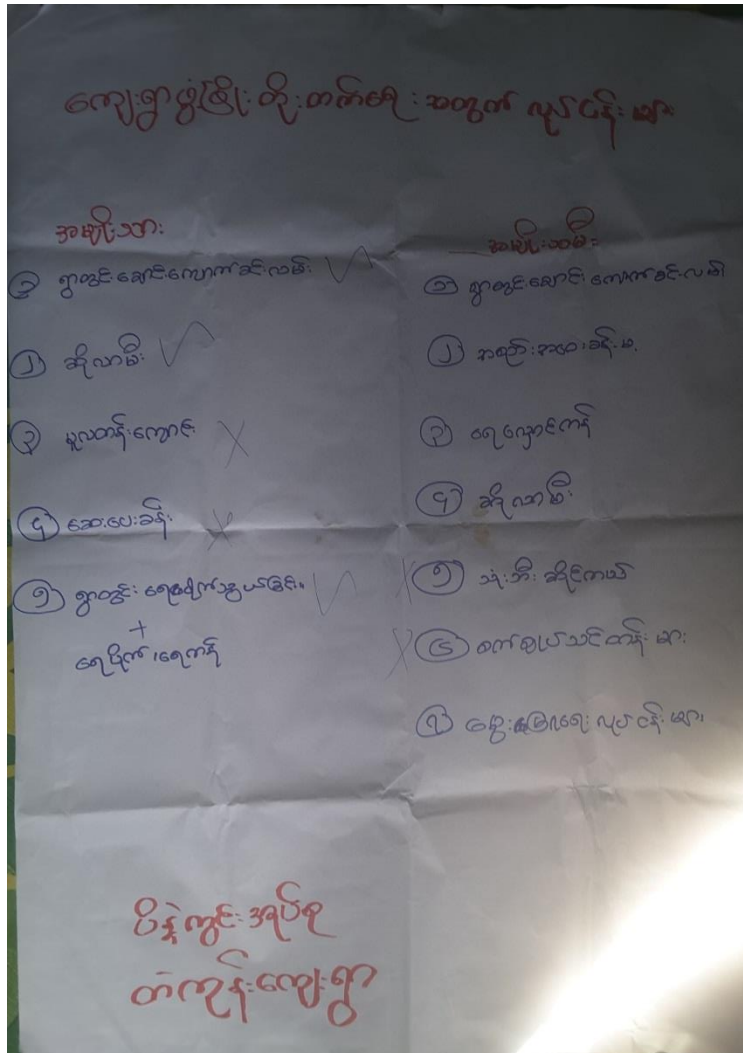 ကျေးရွာဖွံ့ဖြိုးတိုးတက်ရေးအတွက် လုပ်ငန်းများ
အမျိုးသား
၁ ရွာတွင်းချောင်းကျောက်ခင်းလမ်း
၂ ဆိုလာမီး
၃ မူလတန်းကျောင်း
၄ ဆေးပေးခန်း
၅ ရွာတွင်း ရေပိုက်သွယ်ခြင်း။
+
ရေပိုက်၊ ရေကန်
အမျိုးသမီး
၁ ရွာတွင်းချောင်း ကျောက်ခင်းလမ်း
၂ အစည်းအဝေးခန်းမ
၃ ရေလှောင်ကန်
၄ ဆိုလာမီး
၅ သုံးဘီး ဆိုင်ကယ်
၆ စက်ချုပ်သင်တန်းများ
၇ မွေးမြူရေး လုပ်ငန်းများ
ပိန္နဲကွင်းအုပ်စု
တံကုန်းကျေးရွာ